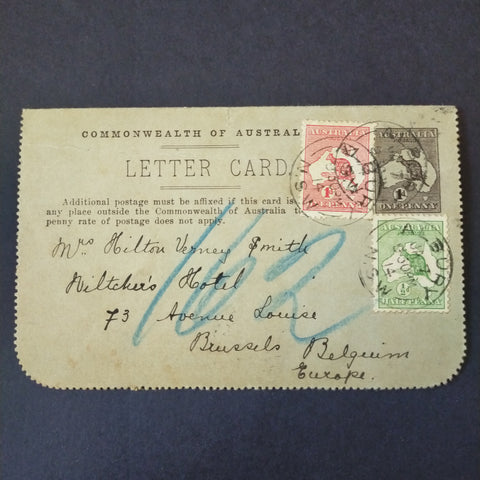 COMMONWEALTH OF AUSTRAL
LETTER CARD
Additional postage must be affixed if this card is
any place outside the Commonwealth of Australia to
penny rate of postage does not apply.
AUSTRALIA
1D
ONE PENNY
AUSTRALIA
1D
ONE PENNY
½D
HALF PENNY
ALBURY
N.S.W
Mrs Hilton Verney Smith
Wiltcher's Hotel
73 Avenue Louise
Brussels Belgium
Europe.
162